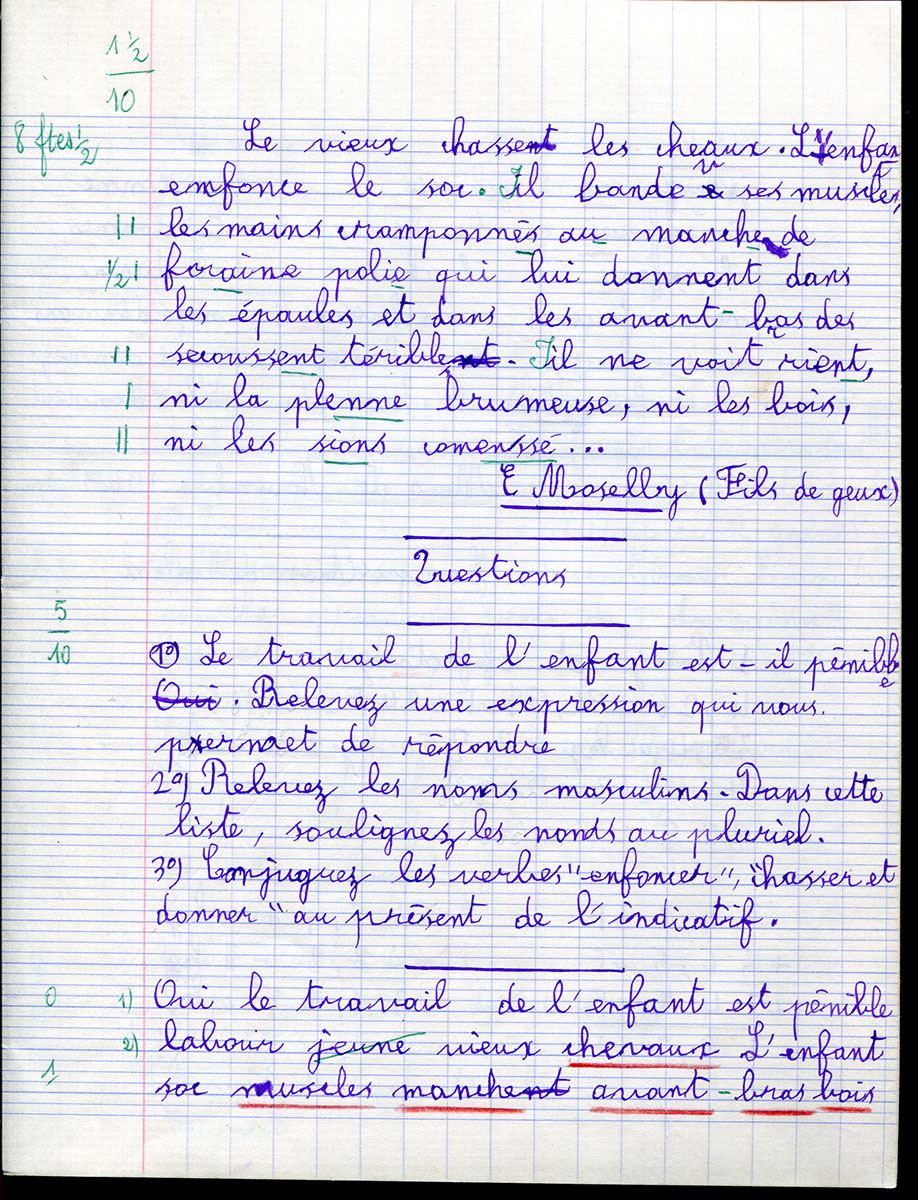 1 ½
10
8 ftes ½
Le vieux chassent les cheaux. L'enfant
enfonce le soc. Il bande ses muscles,
les mains cramponnés au manche de
foraine polie qui lui donnent dans
les épaules et dans les avant-bras des
secoussent térible. Il ne voit rient,
ni la plenne brumeuse, ni les bois,
ni les sions comenssé...
E Moselly (Fils de geux)
Questions
5
10
1º) Le travail de l'enfant est-il pénible
Oui. Relevez une expression qui nous.
permet de répondre
2º) Relevez les noms masculins. Dans cette
liste, soulignez les nonds au pluriel.
3º) Conjuguez les verbes "enfoncer", "chasser et
donner" au présent de l'indicatif.
0 1) Oui le travail de l'enfant est pénible
2) labour jeune vieux chevaux L'enfant
1 soc muscles manchent avant-bras bois